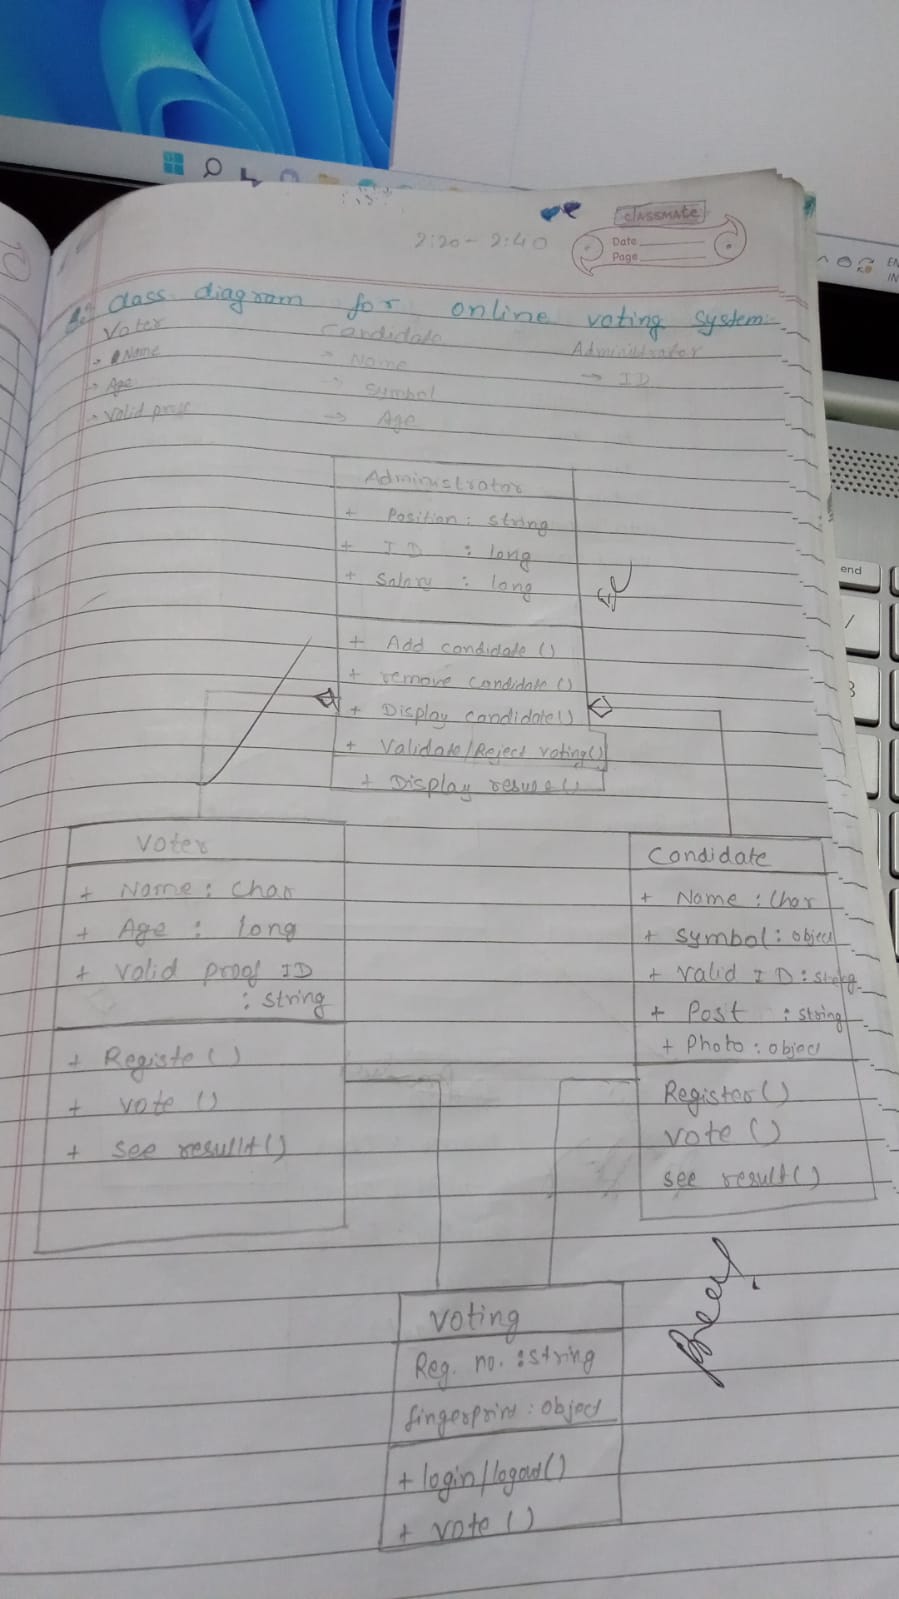 2:20 - 2:40
CLASSMATE
Date
Page
Class diagram for online voting system:-
Voter
Name
Age
Valid proof
Candidate
→ Name
→ Symbol
→ Age
Administrator
→ ID
Administrator
+ Position : string
+ ID : long
+ Salary : long
+ Add candidate ()
+ remove candidate ()
+ Display candidate()
+ Validate/Reject voting()
+ Display
Voter
+ Name : Char
+ Age : long
+ Valid proof ID
: string
+ Registe ()
+ vote ()
+ see resullt()
Candidate
+ Name : Char
+ Symbol : object
+ Valid ID : string
+ Post : string
+ Photo : object
Register()
vote ()
see result()
Voting
Reg. no. : string
fingerprint : object
+ login/logout()
+ vote ()
end
EN
IN